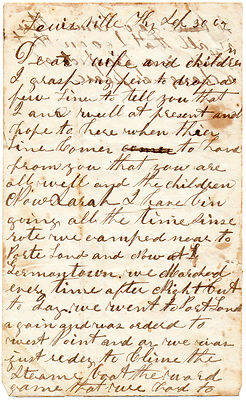 Louisville Ky Sep 30 62
Dear wife and children
I grasp my pen to drop a
few line to tell you that
I am well at present and
hope to here when they
line Comes comes to hand
from you that you are
all well and the children
Now Sarah I have bin
going all the time sinse
rote we camped near to
Portland and Now at
Germantown. we Marched
every time after Night but
to day. we went to Portland
again and was orderd to
West Point and as we was
just redey to Clime the
Steame boat the word
came that we had to